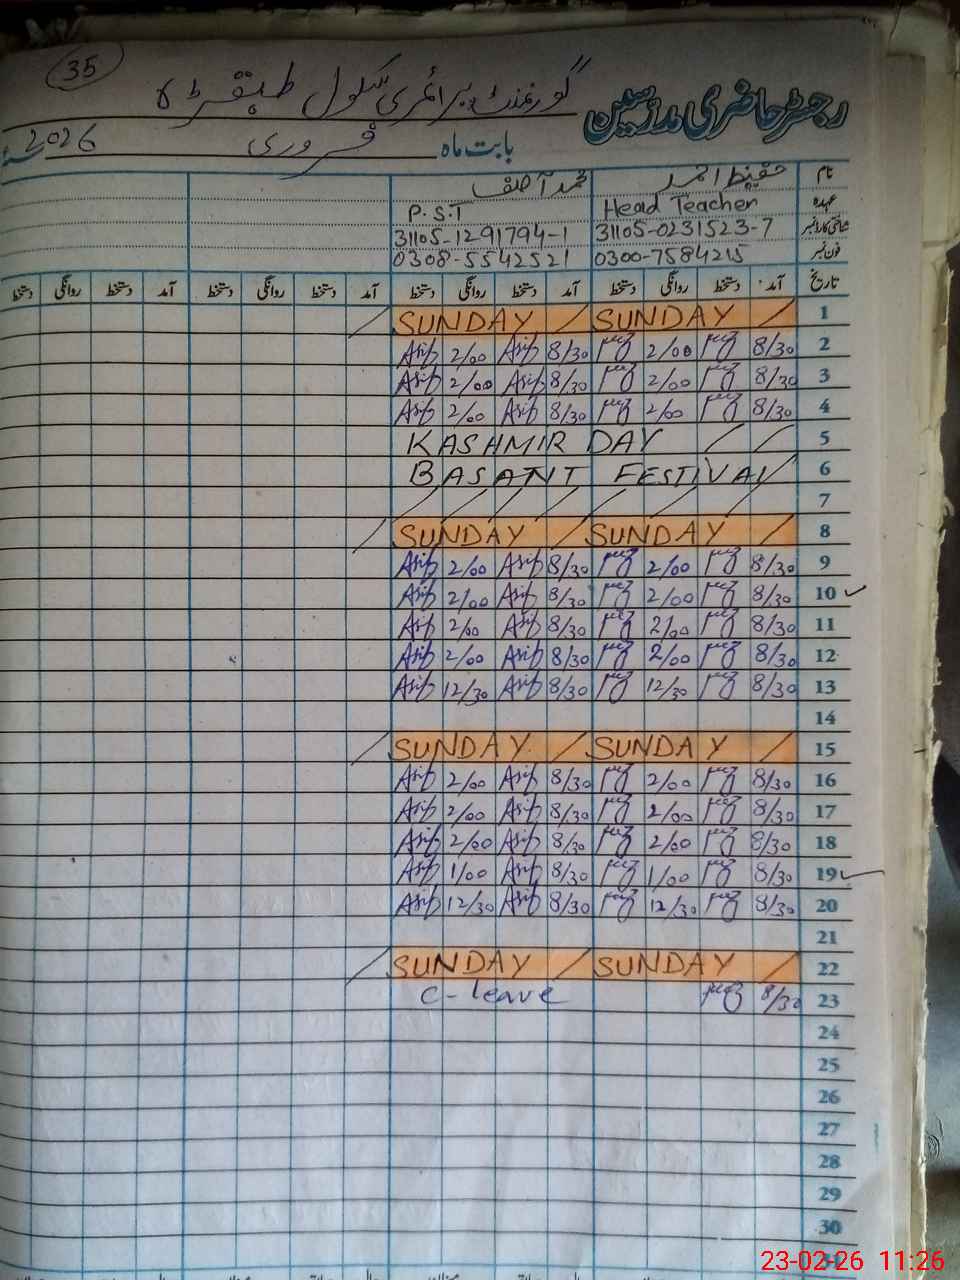 35
رجسٹر حاضری مدرسین گورنمنٹ پرائمری سکول
بابت ماہ فروری 2026
نام حفیظ احمد محمد آصف
عہدہ Head Teacher P.S.T
شناختی کارڈ نمبر 31105-0231523-7 31105-1291794-1
فون نمبر 0300-7584215 0308-5542521
تاریخ آمد دستخط روانگی دستخط آمد دستخط روانگی دستخط آمد دستخط روانگی دستخط آمد دستخط روانگی دستخط
1 SUNDAY SUNDAY
2 8/30 2/00 8/30 Asif 2/00 Asif
3 8/30 2/00 8/30 Asif 2/00 Asif
4 8/30 2/00 8/30 Asif 2/00 Asif
5 KASHMIR DAY
6 BASANT FESTIVAL
7
8 SUNDAY SUNDAY
9 8/30 2/00 8/30 Asif 2/00 Asif
10 8/30 2/00 8/30 Asif 2/00 Asif
11 8/30 2/00 8/30 Asif 2/00 Asif
12 8/30 2/00 8/30 Asif 2/00 Asif
13 8/30 12/30 8/30 Asif 12/30 Asif
14
15 SUNDAY SUNDAY
16 8/30 2/00 8/30 Asif 2/00 Asif
17 8/30 2/00 8/30 Asif 2/00 Asif
18 8/30 2/00 8/30 Asif 2/00 Asif
19 8/30 1/00 8/30 Asif 1/00 Asif
20 8/30 12/30 8/30 Asif 12/30 Asif
21
22 SUNDAY SUNDAY
23 8/30 C-leave
24
25
26
27
28
29
30
31
23-02-26 11:26